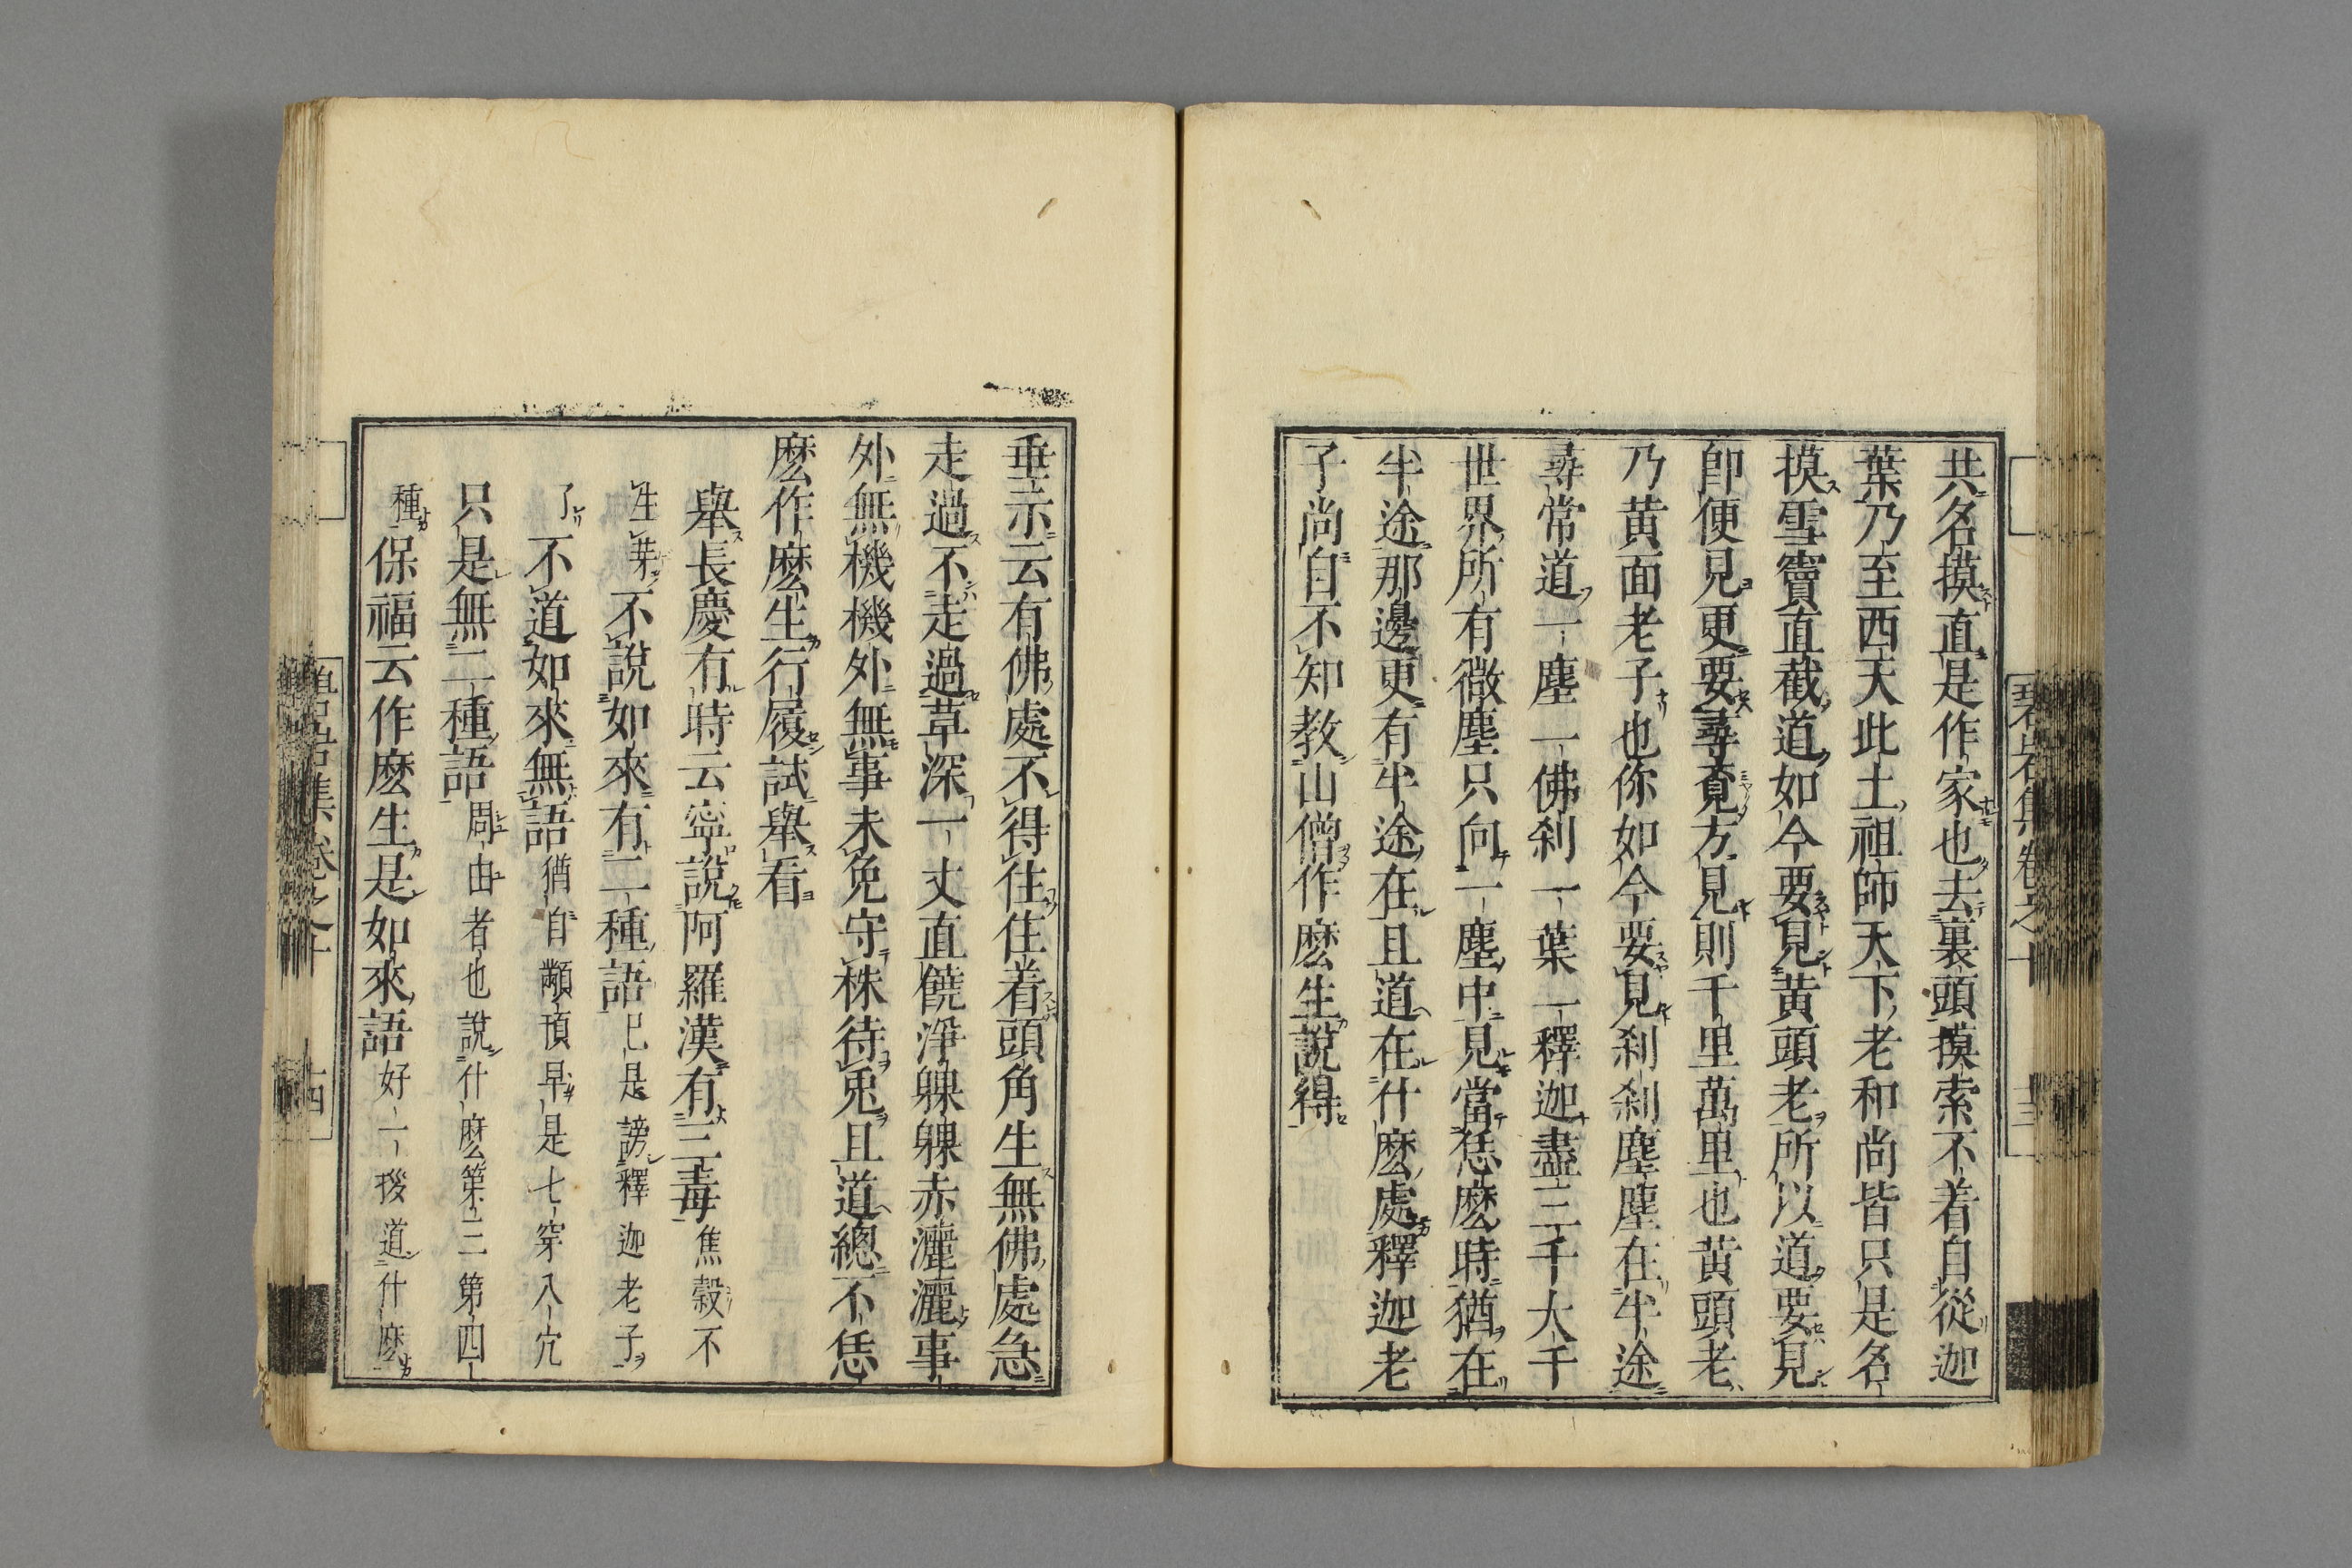 共名摸直是作家也去裏頭摸索不着自從迦
葉乃至西天此土祖師天下老和尚皆只是名
摸雪竇直截道如今要見黃頭老所以道要見
即便見更要尋覓方見則千里萬里也黃頭老
乃黃面老子也你如今要見刹刹塵塵在半途
尋常道一塵一佛刹一葉一釋迦盡三千大千
世界所有微塵只向一塵中見當恁麼時猶在
半途那邊更有半途在且道在什麼處釋迦老
子尚自不知教山僧作麼生說得
垂示云有佛處不得住住着頭角生無佛處急
走過不走過草深一丈直饒淨躶躶赤灑灑事
外無機機外無事未免守株待兎且道總不恁
麼作麼生行履試舉看
舉長慶有時云寧說阿羅漢有三毒焦穀不
生芽不說如來有二種語已是謗釋迦老子
了不道如來無語猶自顢頇早是七穿八穴
只是無二種語周由者也說什麼第三第四
種保福云作麼生是如來語好一拶道什麼
碧岩集卷之十
十三
岩集卷之十
十四